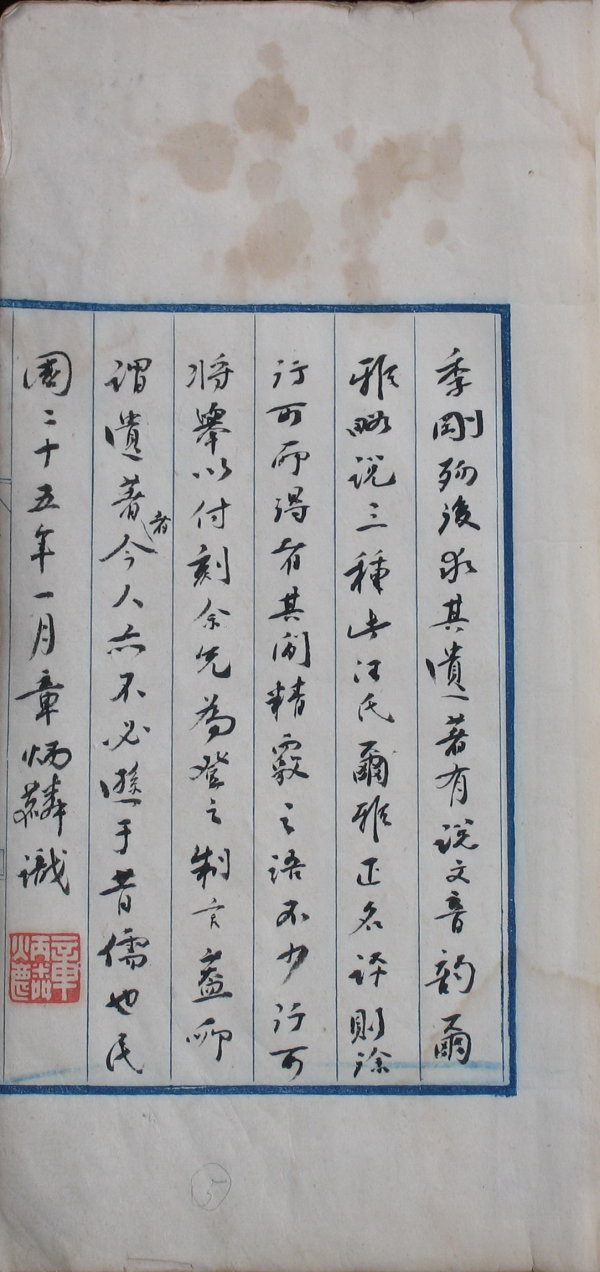 季剛歿後求其遺著有說文音韵爾
雅略說三種此汪氏爾雅正名評則徐
行可所得者其間精覈之語不少行可
將舉以付刻余先為登之制言蓋所
謂遺著者今人亦不必遜于昔儒也民
國二十五年一月章炳麟識
章炳麟
5